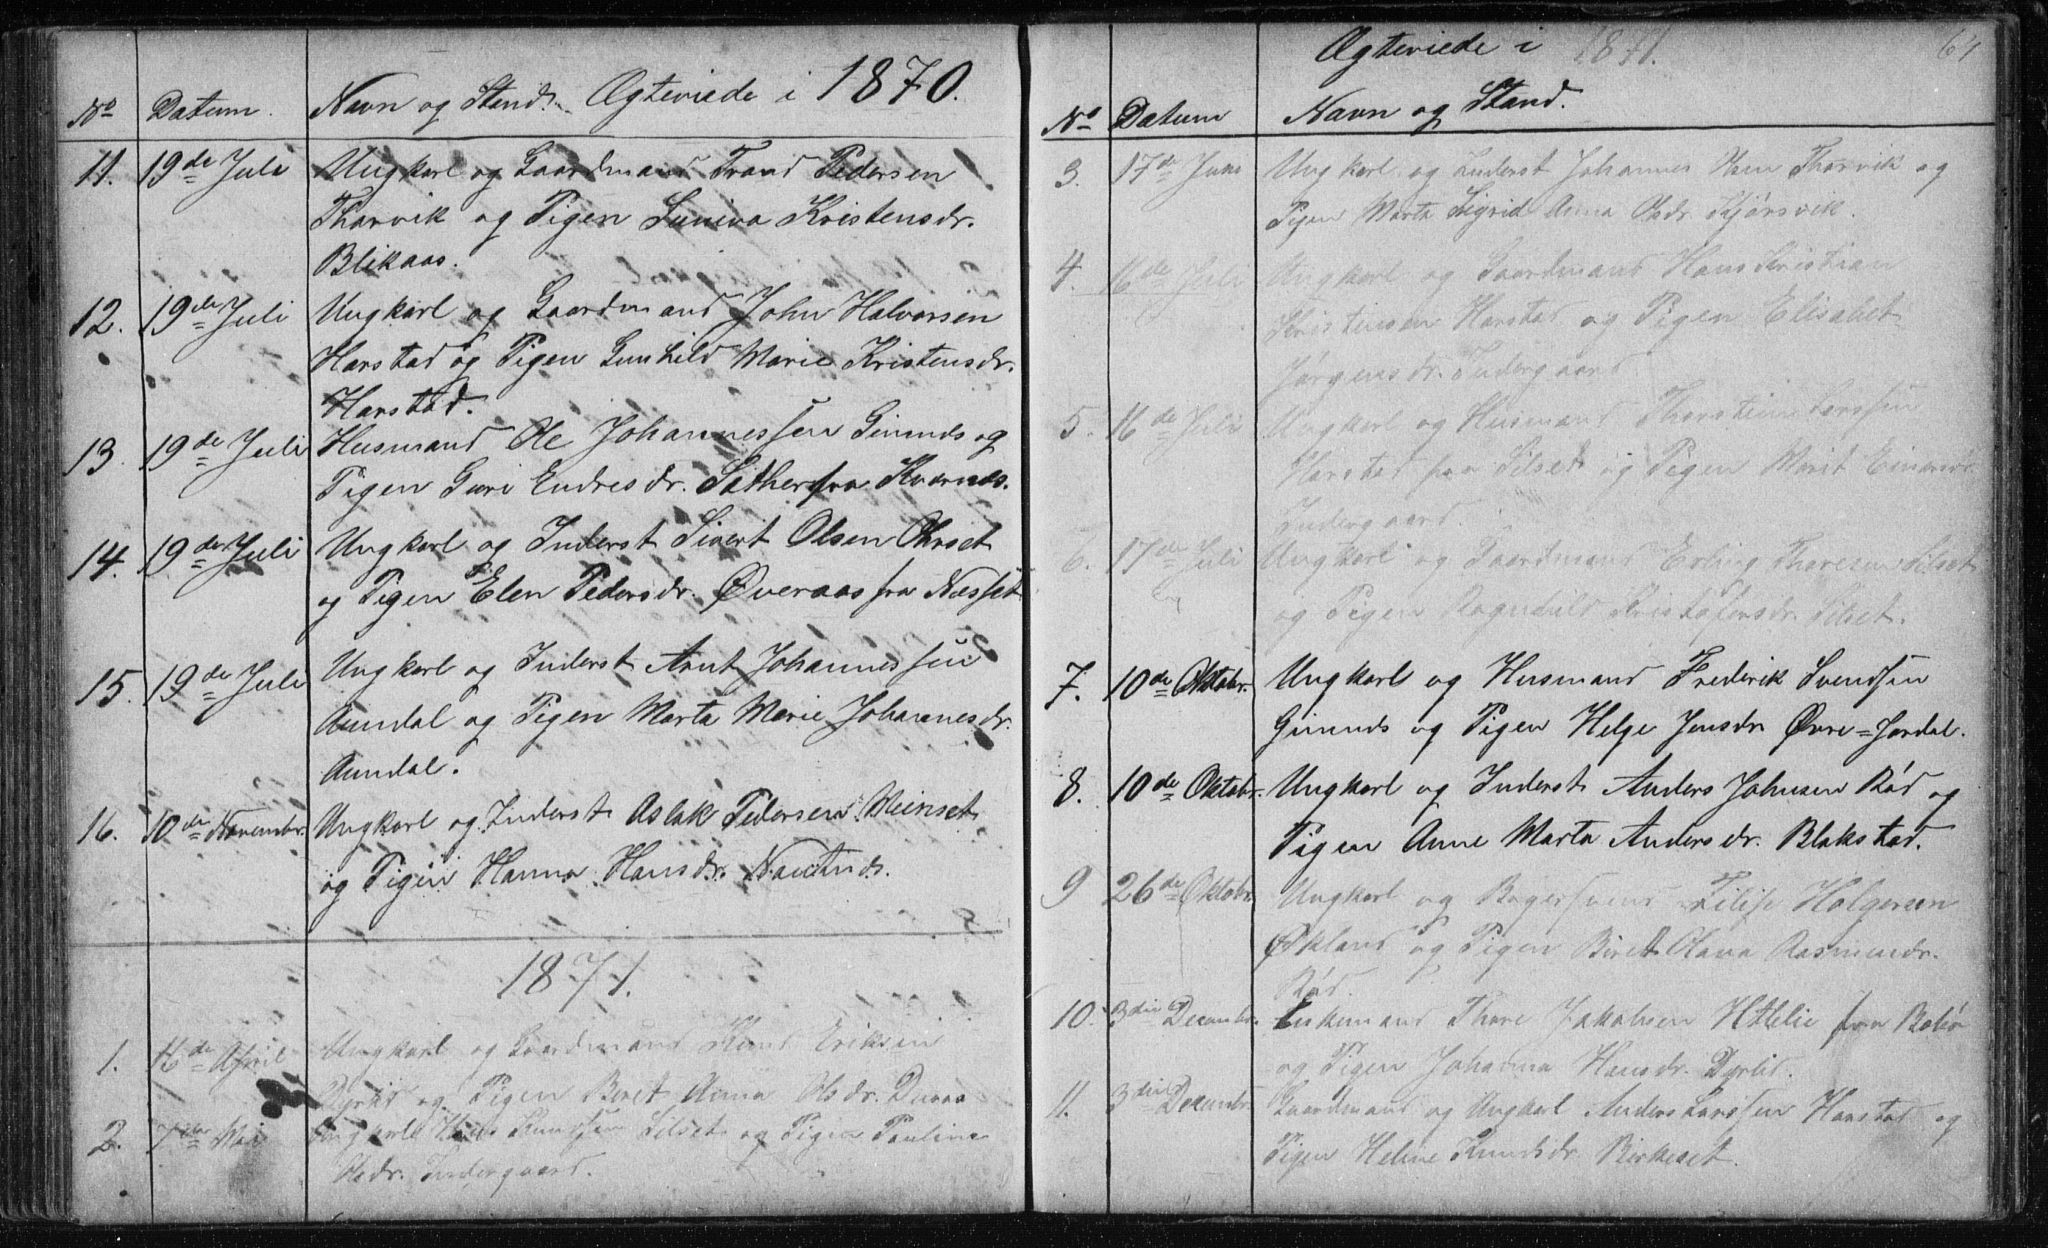 Ægteviede i 1870.
No Datum. Navn og Stand.
11. 19de Juli Ungkarl og Gaardmand Trond Pedersen
Tharvik og Pigen Suniva Kristensdr.
Blikaas.
12. 19de Juli Ungkarl og Gaardmand John Halvorsen
Harstad og Pigen Gunhild Marie Kristensdr.
Harstad.
13. 19de Juli Husmand Ole Johannessen Gimnds og
Pigen Guri Endresdr. Sæther fra Kværnæs.
14. 19de Juli Ungkarl og Inderst Sivert Olsen
og Pigen Elen Pedersdr. Øveraas fra Næsset
15. 19de Juli Ungkarl og Inderst Arnt Johannessen
Aundal og Pigen Marta Marie Johannesdr.
Aundal.
16. 10de Novembr. Ungkarl og Inderst Aslak Pedersen Meinset
og Pigen Hanna Hansdr.
1871.
1. 16de April Ungkarl og Gaardmand Knut Eriksen
Dyrlid og Pigen Beret Anna Olsdr.
2. 7de Mai Ungkarl Hans Knudsen Silset og Pigen Pauline
Olsdr. Indergaard.
Ægteviede i 1871. 64
No Datum Navn og Stand.
3. 17de Juni Ungkarl og Inderst Johannes Tharvik og
Pigen Marta Sigrid Anna Olsdr. Kjørsvik.
4. 16de Juli Ungkarl og Gaardmand Hans Kristian
Kristensen Harstad og Pigen Elisabet
Jørgensdr. Indergaard.
5. 16de Juli Ungkarl og Husmand Thorstein Larssen
Harstad paa Silset og Pigen Marit Einarsdr.
Indergaard
6. 17de Juli Ungkarl og Gaardmand Erling Thoresen Silset
og Pigen Ragnhild Kristofersdr. Silset.
7. 10de Oktobr. Ungkarl og Husmand Frederik Svendsen
Gimnds og Pigen Helge Jensdr Øvre=Jordal.
8. 10de Oktobr. Ungkarl og Inderst Anders Johnsen Rød og
Pigen Anne Marta Andersdr. Blakstad.
9 26de Oktobr. Ungkarl og Bagersvend Filip Holgersen
Økland og Pigen Beret Olava Rasmusdr.
Rød.
10. 3die Decembr. Enkemand Thore Jakobsen Htelie fra Bolsø
og Pigen Johanna Hansdr. Dyrlid.
11. 3die Decembr. Gaardmand og Ungkarl Anders Larssen Harstad og
Pigen Heline Knudsdr. Birkeset.